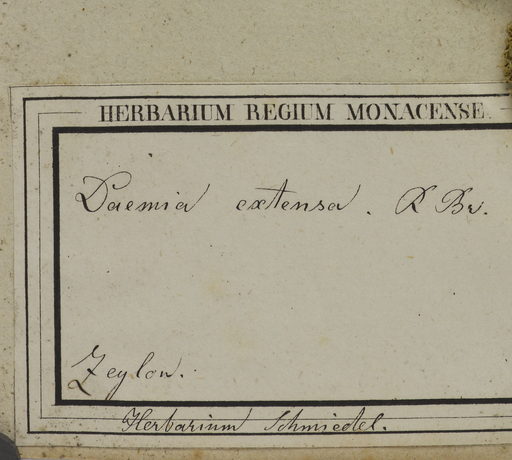 HERBARIUM REGIUM MONACENSE.
Daemia extensa. R Br.
Zeylon.
Herbarium Schmiedel.